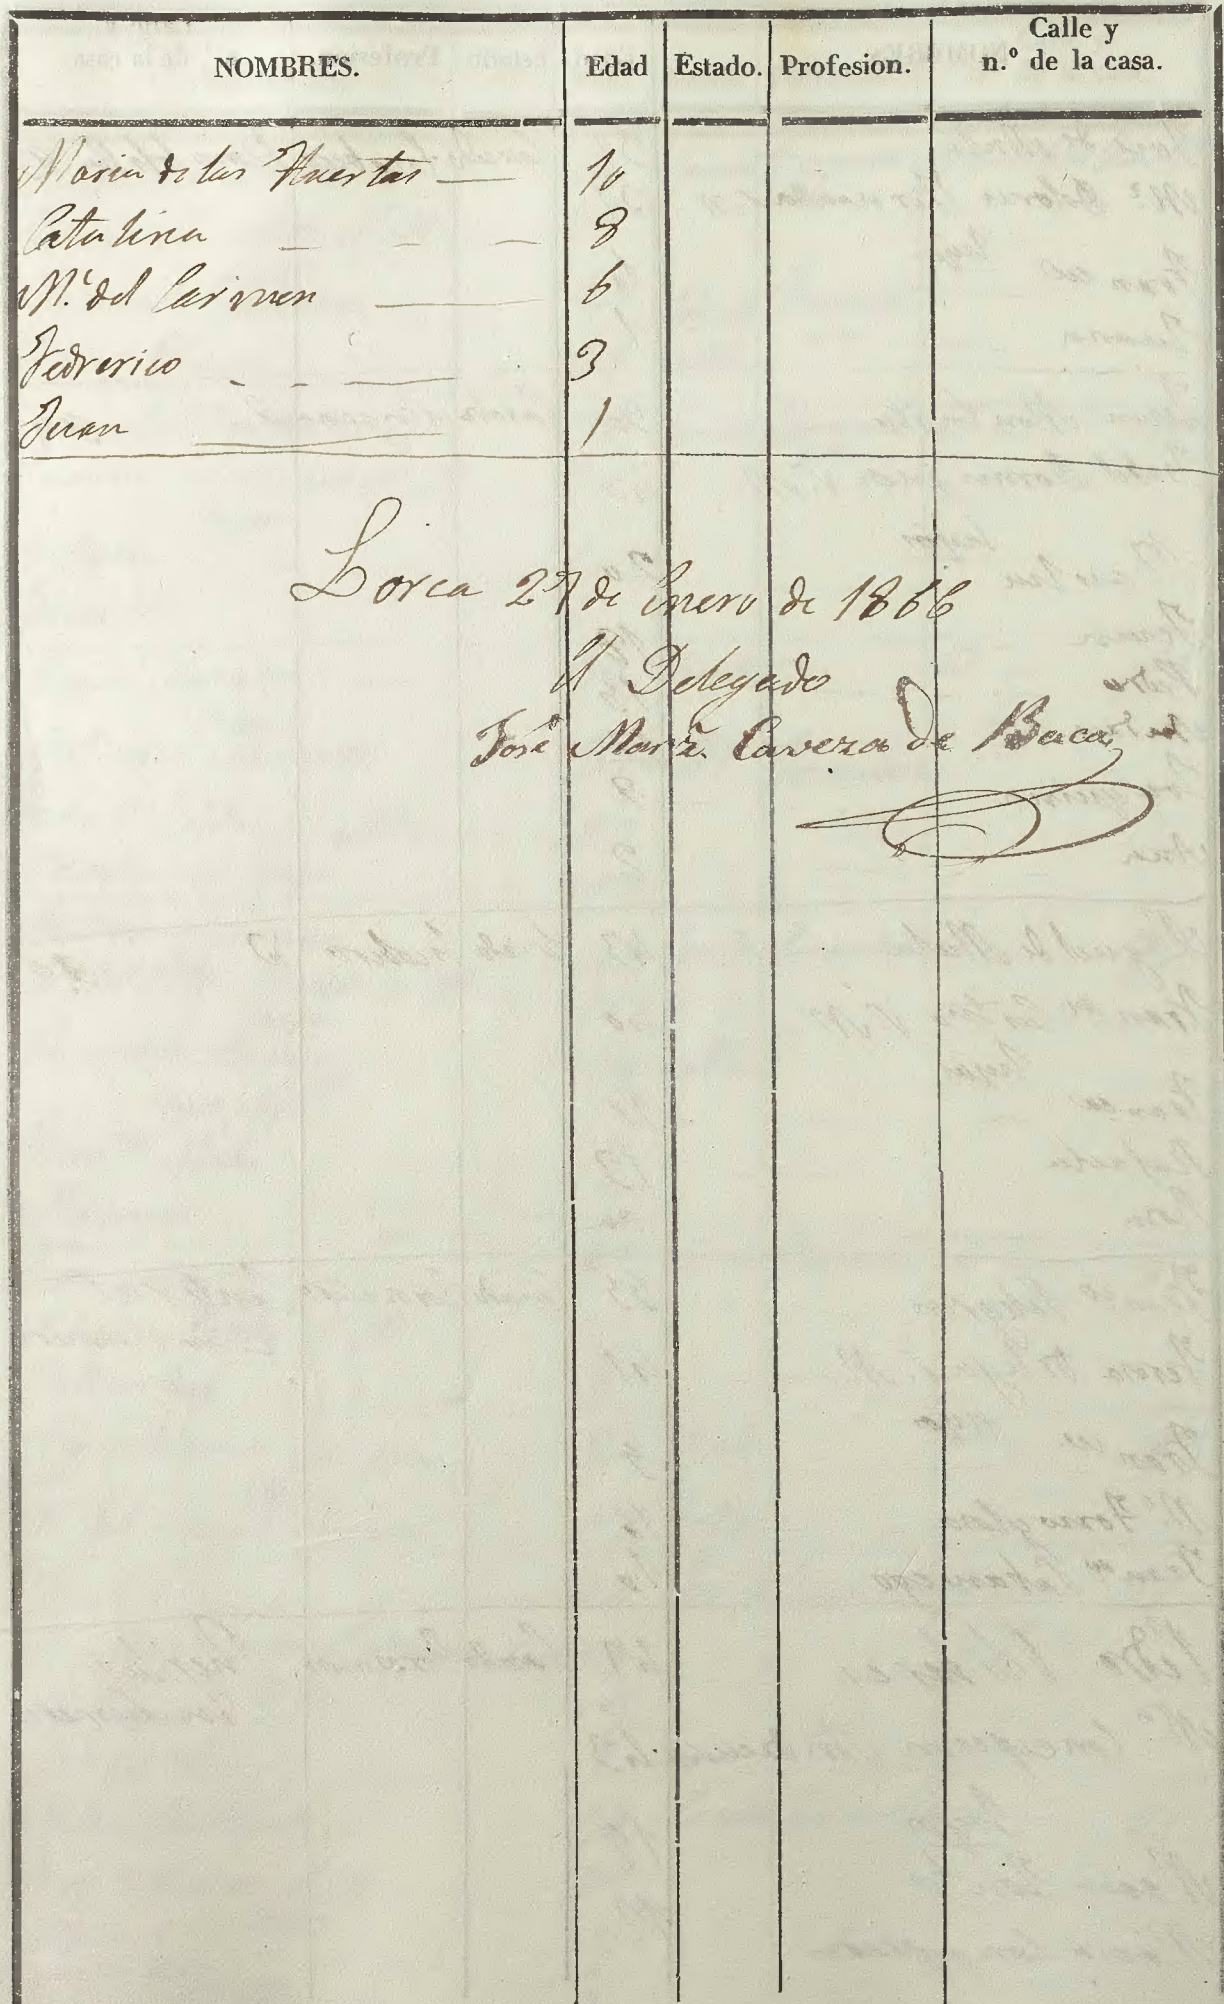 NOMBRES. Edad Estado. Profesion. Calle y n.º de la casa.
Maria de las Huertas — 10
Catalina — — — 8
M.ª del Carmen — 6
Fedrerico - - — 3
Juan — 1
Lorca 27 de Enero de 1866
El Delegado
José Marª. Caveza de Baca